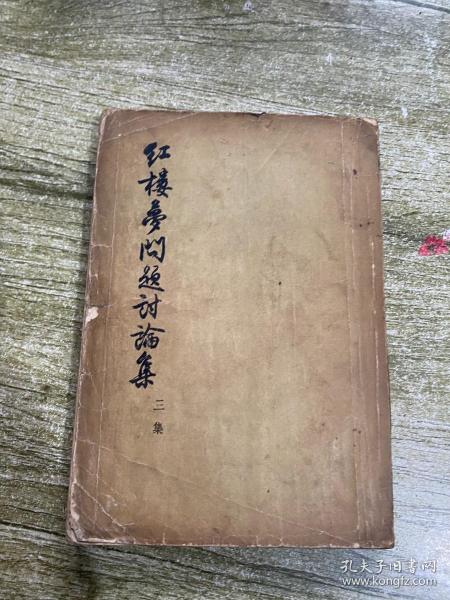 红楼夢问题討論集
三集
孔夫子旧书网
www.kongfz.com